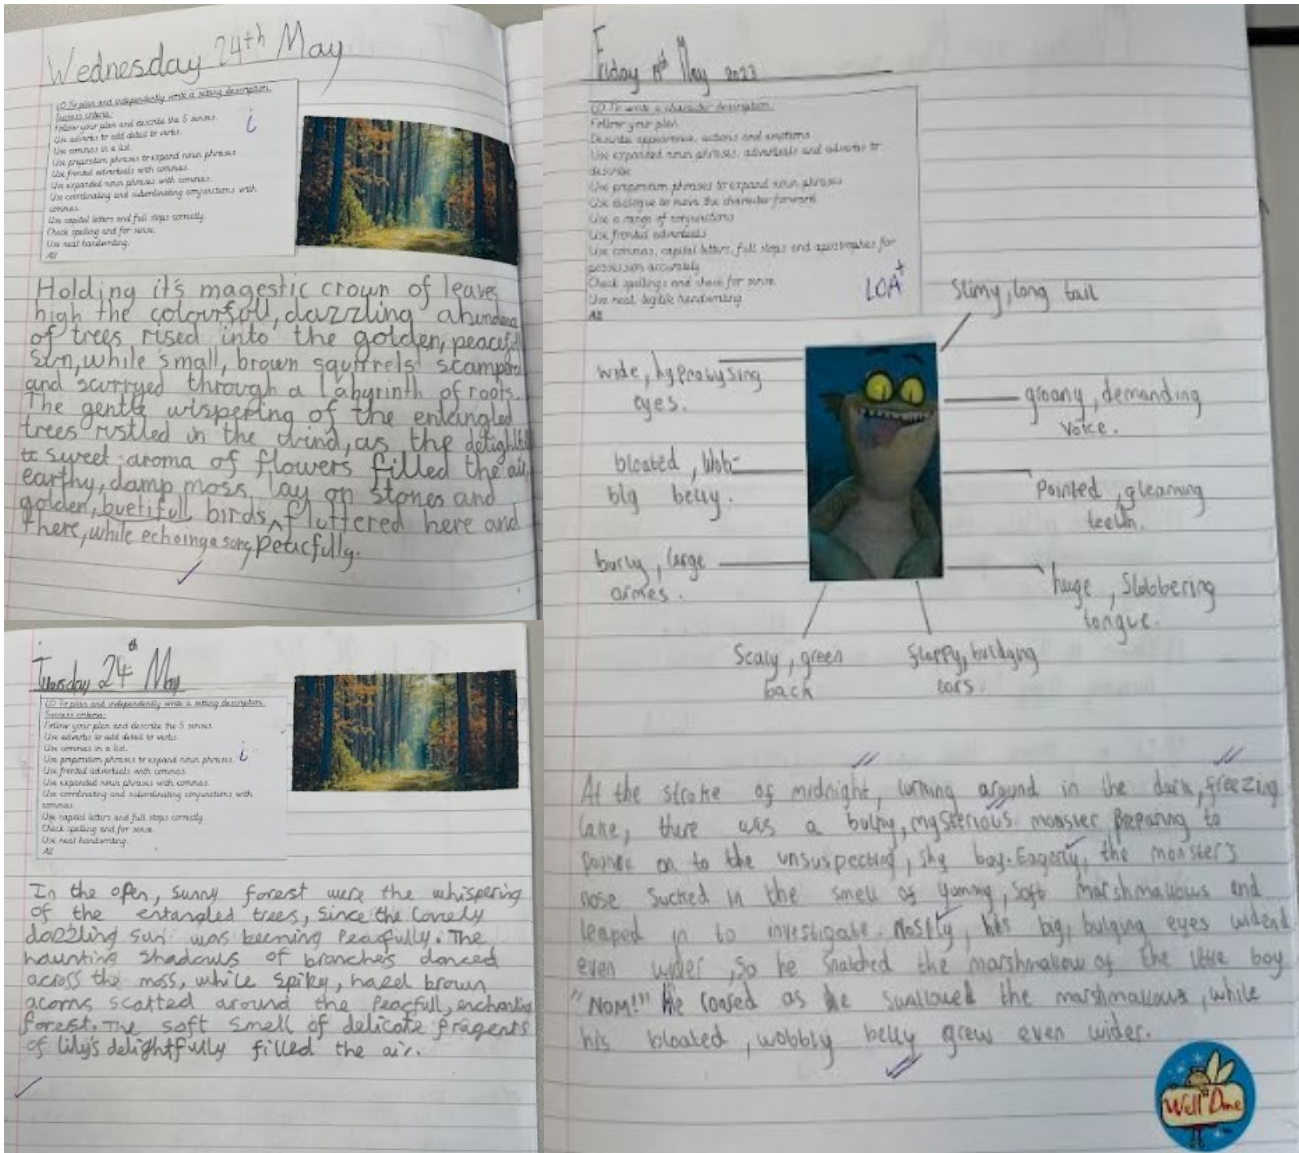 Wednesday 24th May
LO To plan and independently write a setting description.
Success criteria:
Follow your plan and describe the 5 senses.
Use adverbs to add detail to verbs.
Use commas in a list.
Use preposition phrases to expand noun phrases.
Use fronted adverbials with commas.
Use expanded noun phrases with commas.
Use coordinating and subordinating conjunctions with
commas.
Use capital letters and full stops correctly.
Check spelling and for sense.
Use neat handwriting.
i
Holding it's magestic crown of leaves
high the colourfull, dazzling abundance
of trees rised into the golden, peacefull
sun, while small, brown squirrels scampered
and scurryed through a labyrinth of roots.
The gentle wispering of the entangled
trees rustled in the wind, as the delightful
sweet aroma of flowers filled the air,
earthy, damp moss lay on stones and
golden, buetifull birds, fluttered here and
there, while echoing a song peacfully.
Tuesday 24th May
LO To plan and independently write a setting description.
Success criteria:
Follow your plan and describe the 5 senses.
Use adverbs to add detail to verbs.
Use commas in a list.
Use preposition phrases to expand noun phrases.
Use fronted adverbials with commas.
Use expanded noun phrases with commas.
Use coordinating and subordinating conjunctions with
commas.
Use capital letters and full stops correctly.
Check spelling and for sense.
Use neat handwriting.
i
In the open, sunny forest were the whispering
of the entangled trees, since the lovely
dazzling sun was beeming peacfully. The
haunting shadows of branches danced
across the moss, while spiky, hazel brown
acorns scatted around the peacfull, enchanting
forest. The soft smell of delicate fragents
of lily's delightfully filled the air.
Friday May 2023
LO To write a character description.
Follow your plan
Describe appearance, actions and emotions
Use expanded noun phrases, adverbials and adverbs to
describe
Use preposition phrases to expand noun phrases
Use dialogue to move the character forward
Use a range of conjunctions
Use fronted adverbials
Use commas, capital letters, full stops and apostrophes for
possession accurately
Check spellings and check for sense
Use neat legible handwriting
LOA+
Slimy, long tail
wide, hyprowysing
eyes.
groany, demanding
voice.
bloated, wob-
blg belly.
Pointed, gleaming
teeth.
burly, large
armes.
huge, slobbering
tongue.
Scaly, green
back
floppy, buldging
ears.
At the stroke of midnight, lurking around in the dark, freezing
lake, there was a bulky, mysterious monster preparing to
pounce on to the unsuspecting, shy boy. Eagerly, the monster's
nose sucked in the smell of yummy, soft marshmallows and
leaped in to investigate. his big, bulging eyes widend
even wider, so he snatched the marshmallow of the little boy
"NOM!" He as he swallowed the marshmallows, while
his bloated, wobbly belly grew even wider.
Well Done